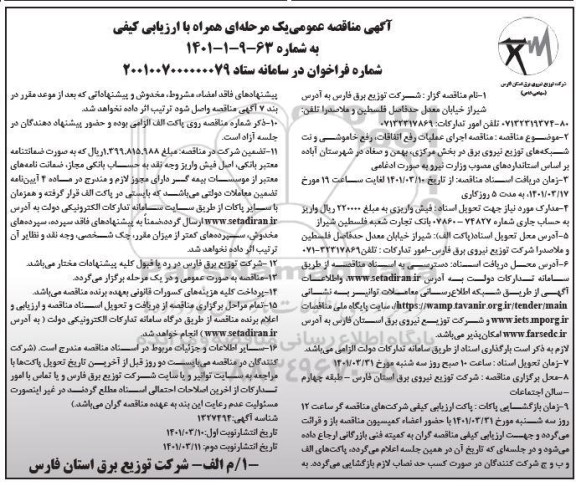 آگهی مناقصه عمومی یک مرحله‌ای همراه با ارزیابی کیفی
به شماره ۶۳-۹-۱-۱۴۰۱
شماره فراخوان در سامانه ستاد ۲۰۰۱۰۰۷۰۰۰۰۰۰۰۷۹
شرکت توزیع نیروی برق استان فارس
(سهامی خاص)
۱-نام مناقصه گزار : شرکت توزیع برق فارس به آدرس
شیراز خیابان معدل حدفاصل فلسطین و ملاصدرا تلفن:
۸۰-۰۷۱۳۲۳۱۹۳۷۴ تلفن امور تدارکات: ۰۷۱۳۲۳۱۷۸۶۹
۲-موضوع مناقصه : مناقصه اجرای عملیات رفع اتفاقات رفع خاموشی و نت
شبکه‌های توزیع نیروی برق در بخش مرکزی، بهمن و صغاد در شهرستان آباده
بر اساس استانداردهای مصوب وزارت نیرو به صورت ادغامی
۳-زمان دریافت اسناد مناقصه: از تاریخ ۱۴۰۱/۰۳/۱۰ لغایت ساعت ۱۹ مورخ
۱۴۰۱/۰۳/۱۷، به مدت ۵ روزکاری
۴-مدارک مورد نیاز جهت تحویل اسناد : فیش واریزی به مبلغ ۲۲۰۰۰۰ ریال واریز
به حساب جاری شماره ۷۴۸۲۷-۰۷۸۶۰ بانک تجارت شعبه فلسطین شیراز
۵-آدرس محل تحویل اسناد(پاکت الف): شیراز خیابان معدل حدفاصل فلسطین
و ملاصدرا شرکت توزیع نیروی برق فارس-امور تدارکات : تلفن ۳۲۳۱۷۸۶۹-۰۷۱
۶-آدرس محل دریافت اسناد: دسترسی به اسناد مناقصه از طریق
سامانه تدارکات دولت به آدرس www.setadiran.ir واطلاعات
آگهی از طریق شبکه اطلاع‌رسانی معاملات توانیر به نشانی
https://wamp.tavanir.org.ir/tender/main، سایت پایگاه ملی مناقصات
www.iets.mporg.ir و شرکت توزیع نیروی برق استان فارس به آدرس
www.farsedc.ir امکان‌پذیر می‌باشد.
لازم به ذکر است بارگذاری اسناد از طریق سامانه تدارکات دولت الزامی می‌باشد.
۷-زمان تحویل اسناد : ساعت ۱۰ صبح روز سه شنبه مورخ ۱۴۰۱/۰۳/۳۱
۸-محل برگزاری مناقصه : شرکت توزیع نیروی برق استان فارس - طبقه چهارم
-سالن اجتماعات
۹-زمان بازگشایی پاکات : پاکت ارزیابی کیفی شرکت‌های مناقصه گر ساعت ۱۲
روز سه شنبه مورخ ۱۴۰۱/۰۳/۳۱ با حضور اعضاء کمیسیون مناقصه باز و قرائت
می‌گردد و جهت ارزیابی کیفی مناقصه گران به کمیته فنی بازرگانی ارجاع داده
می‌شود و در جلسه‌ای که تاریخ آن در همین جلسه اعلام می‌گردد، پاکت‌های الف
و ب و ج شرکت کنندگان در صورت کسب حد نصاب لازم بازگشایی می‌گردد. به
پیشنهادهای فاقد امضاء، مشروط، مخدوش و پیشنهاداتی که بعد از موعد مقرر در
بند ۷ آگهی مناقصه واصل شود ترتیب اثر داده نخواهد شد.
۱۰-ذکر شماره مناقصه روی پاکت الف الزامی بوده و حضور پیشنهاد دهندگان در
جلسه آزاد است.
۱۱-تضمین شرکت در مناقصه: مبلغ ۱,۳۹۹,۸۱۵,۹۸۸ ریال که به صورت ضمانتنامه
معتبر بانکی، اصل فیش واریز وجه نقد به حساب بانکی مجاز، ضمانت نامه‌های
معتبر از موسسات بیمه گر دارای مجوز لازم و مندرج در ماده ۴ آیین‌نامه
تضمین معاملات دولتی می‌باشد که بایستی در پاکت الف قرار گرفته و همزمان
با سایر پاکات از طریق سایت سامانه تدارکات الکترونیکی دولت به آدرس
www.setadiran.ir ارسال گردد.ضمناً به پیشنهادهای فاقد سپرده، سپرده‌های
مخدوش، سپرده‌های کمتر از میزان مقرر، چک شخصی، وجه نقد و نظایر آن
ترتیب اثر داده نخواهد شد.
۱۲-شرکت توزیع برق فارس در رد یا قبول کلیه پیشنهادات مختار می‌باشد.
۱۳-مناقصه به صورت عمومی و در یک مرحله برگزار می‌گردد.
۱۴-پرداخت کلیه هزینه‌های کسورات قانونی بعهده برنده مناقصه می‌باشد.
۱۵-تمام مراحل برگزاری مناقصه از دریافت و تحویل اسناد مناقصه و ارزیابی و
اعلام برنده مناقصه از طریق درگاه سامانه تدارکات الکترونیکی دولت ( به آدرس
www.setadiran.ir) انجام خواهد شد.
۱۶-سایر اطلاعات و جزئیات مربوط در اسناد مناقصه مندرج است. (شرکت
کنندگان در مناقصه می‌بایست دو روز قبل از آخرین تاریخ تحویل پاکت‌ها با
مراجعه به سایت توانیر و یا سایت شرکت توزیع برق فارس و یا تماس با امور
تدارکات از آخرین اصلاحات احتمالی اسناد مطلع گردند در غیر اینصورت
مسئولیت عدم رعایت این بند به عهده مناقصه گران می‌باشد.)
شناسه آگهی: ۱۳۲۷۴۹۴
تاریخ انتشار نوبت اول: ۱۴۰۱/۰۳/۱۰
تاریخ انتشار نوبت دوم: ۱۴۰۱/۰۳/۱۱
۱-/م الف- شرکت توزیع برق استان فارس